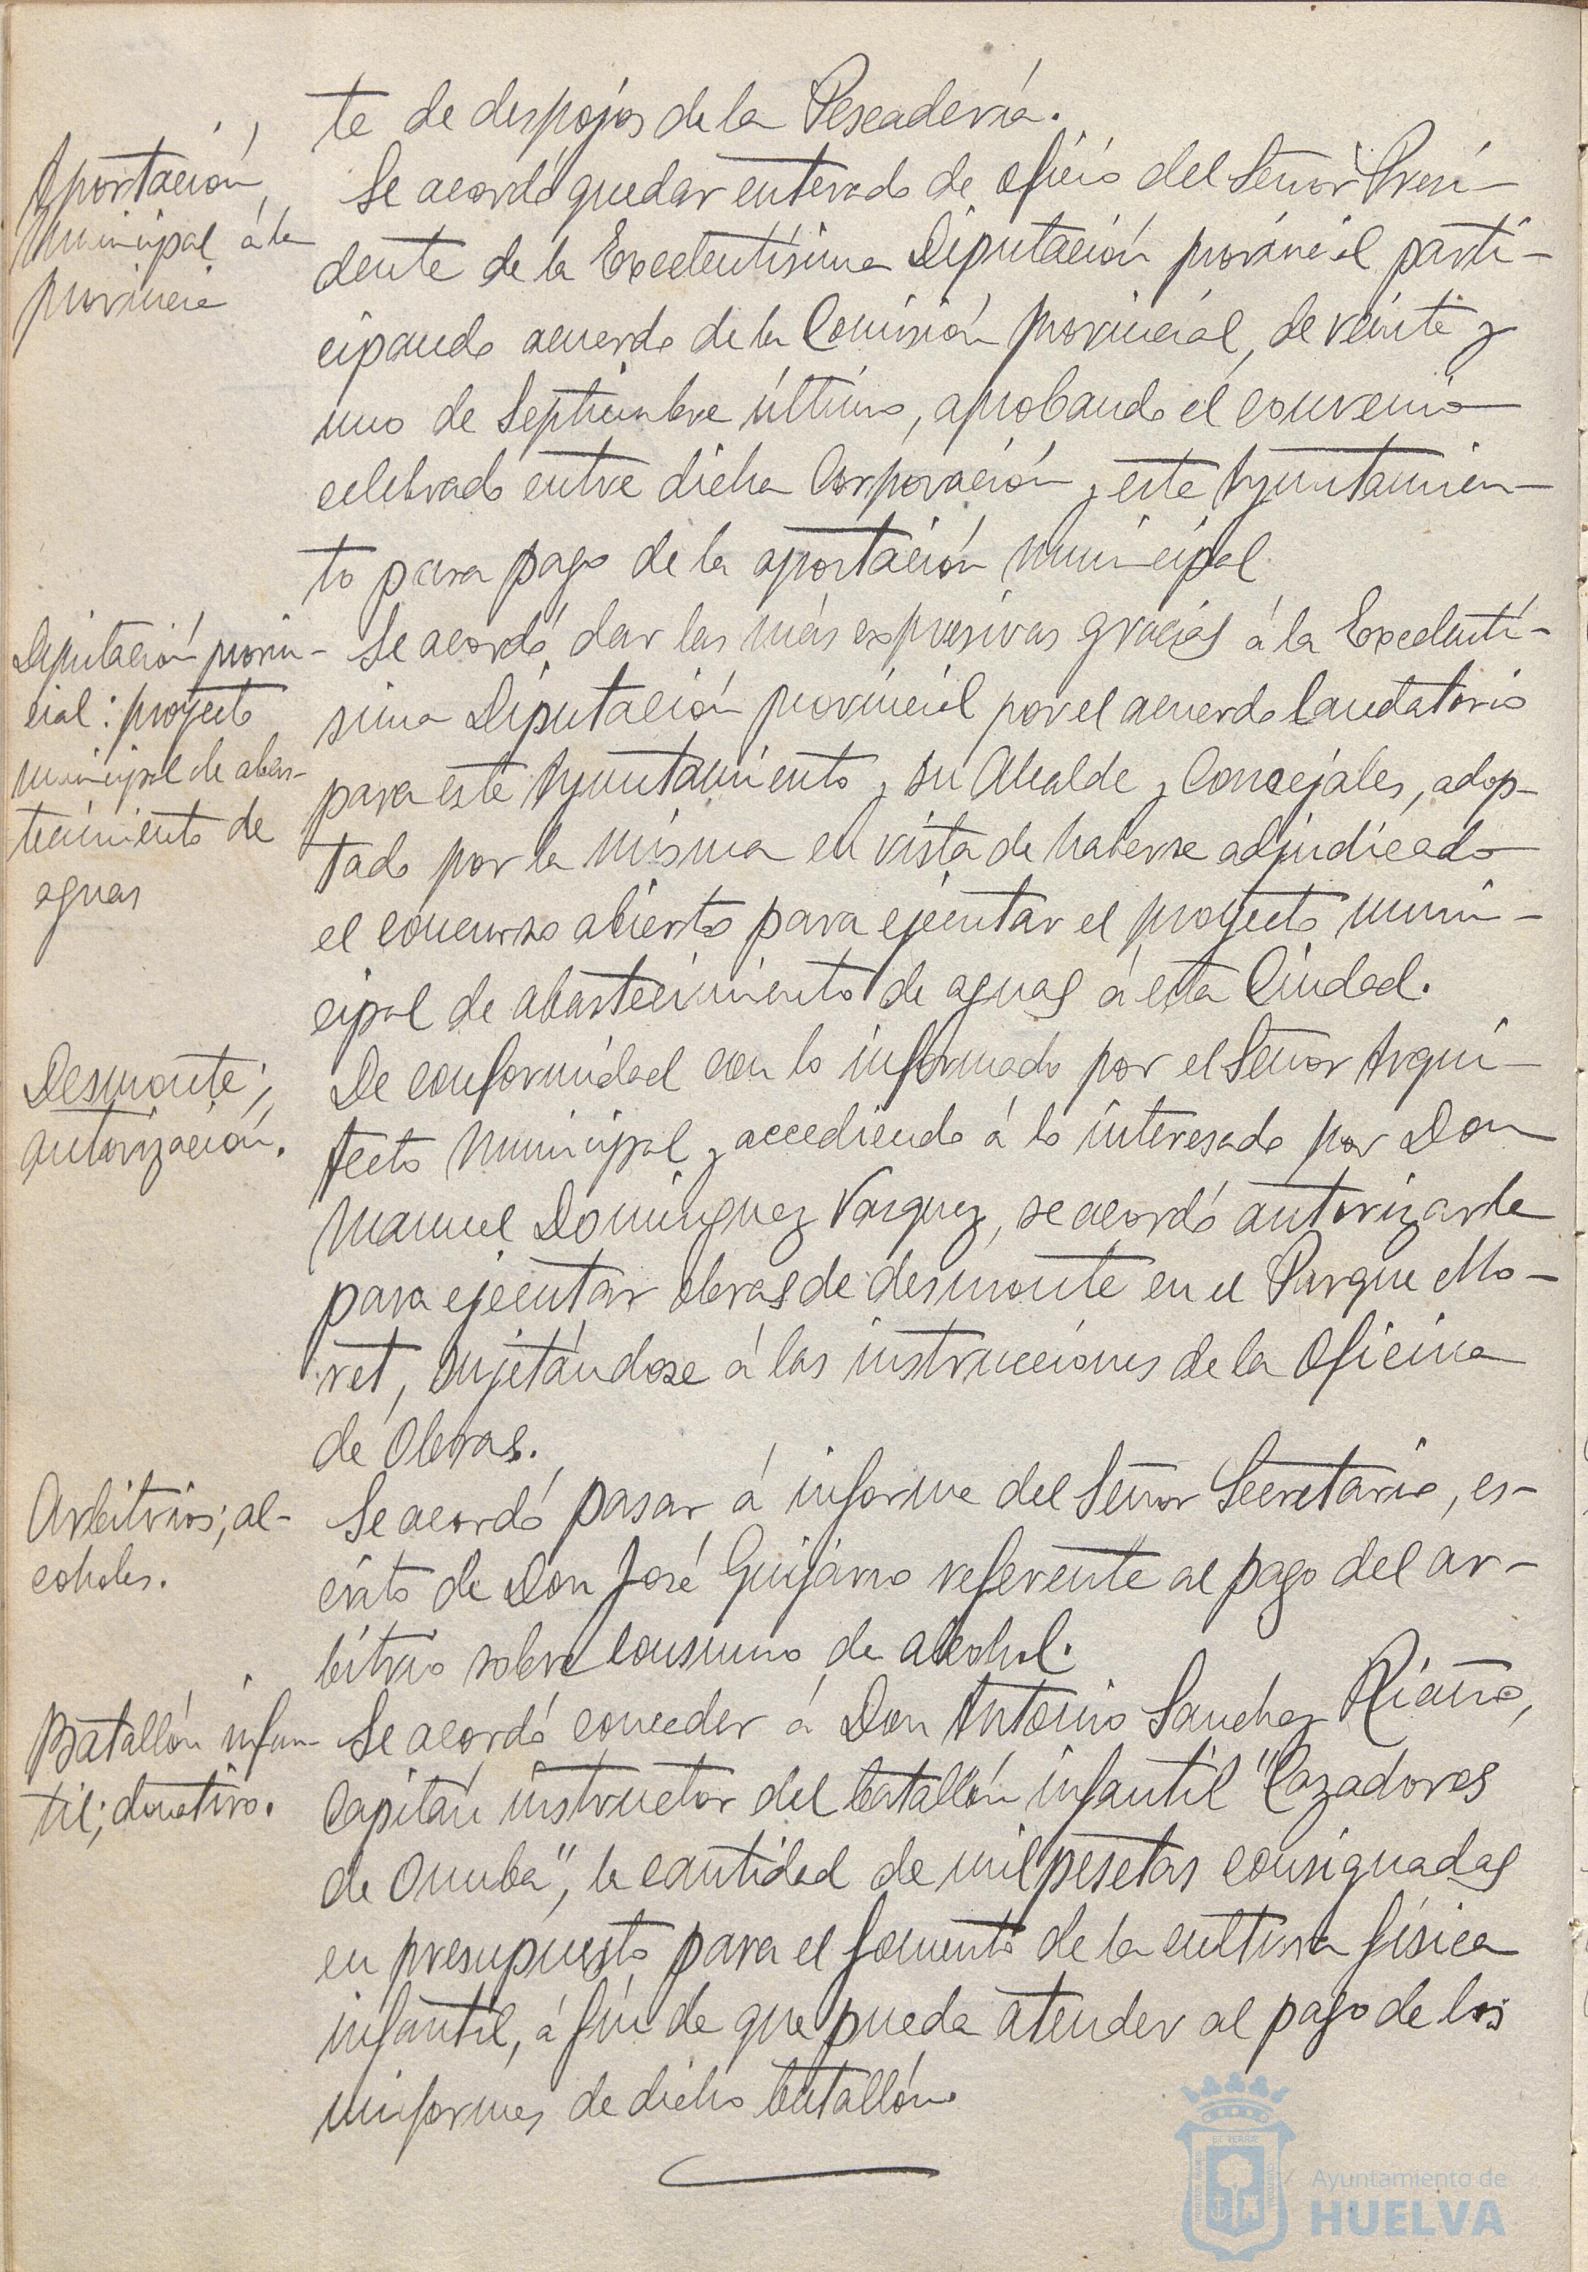 te de despojos de la Pescadería.
Aportación
municipal á la
provincia
Se acordó quedar enterado de oficio del Señor Presi-
dente de la Excelentísima Diputación provincial parti-
cipando acuerdo de la Comisión provincial, de veinte y
uno de Septiembre último, aprobando el convenio
celebrado entre dicha Corporación y este Ayuntamien-
to para pago de la aportación municipal.
Diputación provin-
cial: proyecto
municipal de abas-
tecimiento de
aguas
Se acordó dar las más expresivas gracias á la Excelentí-
sima Diputación provincial por el acuerdo laudatorio
para este Ayuntamiento y su Alcalde y Concejales, adop-
tado por la misma en vista de haberse adjudicado
el concurso abierto para ejecutar el proyecto muni-
cipal de abastecimiento de aguas á esta Ciudad.
Desmonte;
autorización.
De conformidad con lo informado por el Señor Arqui-
tecto Municipal y accediendo á lo interesado por Don
Manuel Dominguez Vazquez, se acordó autorizarle
para ejecutar obras de desmonte en el Parque Mo-
ret, sujetándose á las instrucciones de la Oficina
de Obras.
Arbitrios; al-
coholes.
Se acordó pasar á informe del Señor Secretario, es-
crito de Don José Guijarro referente al pago del ar-
bitrio sobre consumo de alcohol.
Batallón infan-
til; donativo.
Se acordó conceder á Don Antonio Sanchez Riaño,
Capitán instructor del batallón infantil "Cazadores
de Onuba", la cantidad de mil pesetas consignadas
en presupuesto para el fomento de la cultura física
infantil, á fin de que pueda atender al pago de los
uniformes de dicho batallón.
Ayuntamiento de
HUELVA